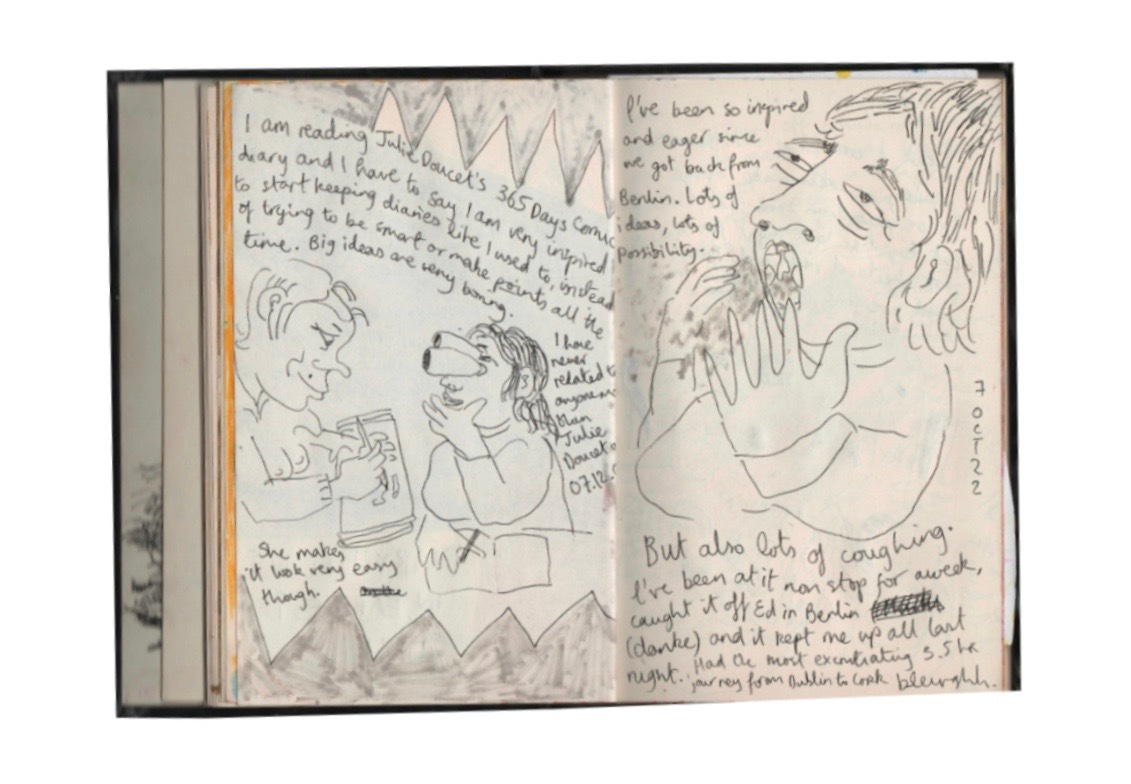 I am reading Julie Doucet's 365 Days Comic
diary and I have to say I am very inspired
to start keeping diaries like I used to, instead
of trying to be smart or make points all the
time. Big ideas are very boring.
I have
never
related to
anyone
than
Julie
Doucet
07.12.
She makes
it look very easy
though.
I've been so inspired
and eager since
we got back from
Berlin. Lots of
ideas, lots of
possibility.
7
OCT
22
But also lots of coughing.
I've been at it non stop for a week,
caught it off Ed in Berlin
(danke) and it kept me up all last
night. Had the most excrutiating 3.5 hr
journey from Dublin to Cork bleurghh.